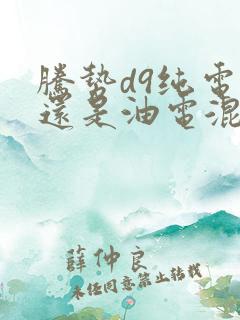 騰勢d9纯電
還是油電混
薛仲良
未经同意禁止转载